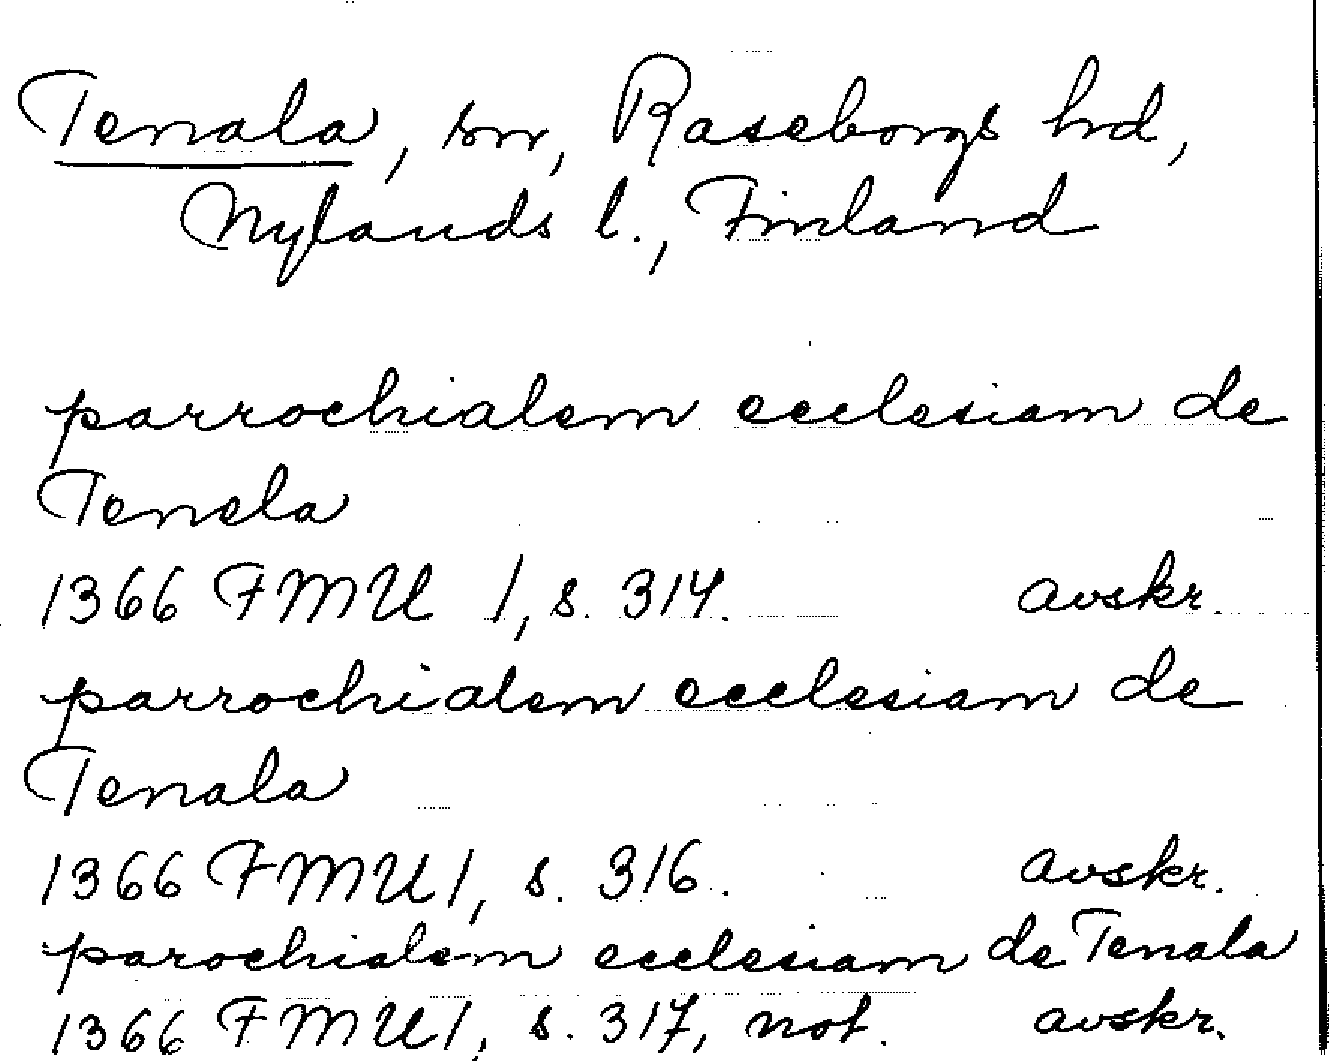 Tenala, sn, Raseborgs hd,
Nylands l., Finland
parrochialem ecclesiam de
Tenela
1366 FMU 1, s. 314. avskr.
parrochialem ecclesiam de
Tenala
1366 FMU 1, s. 316. avskr.
parochialem ecclesiam de Tenala
1366 FMU 1, s. 317, not. avskr.